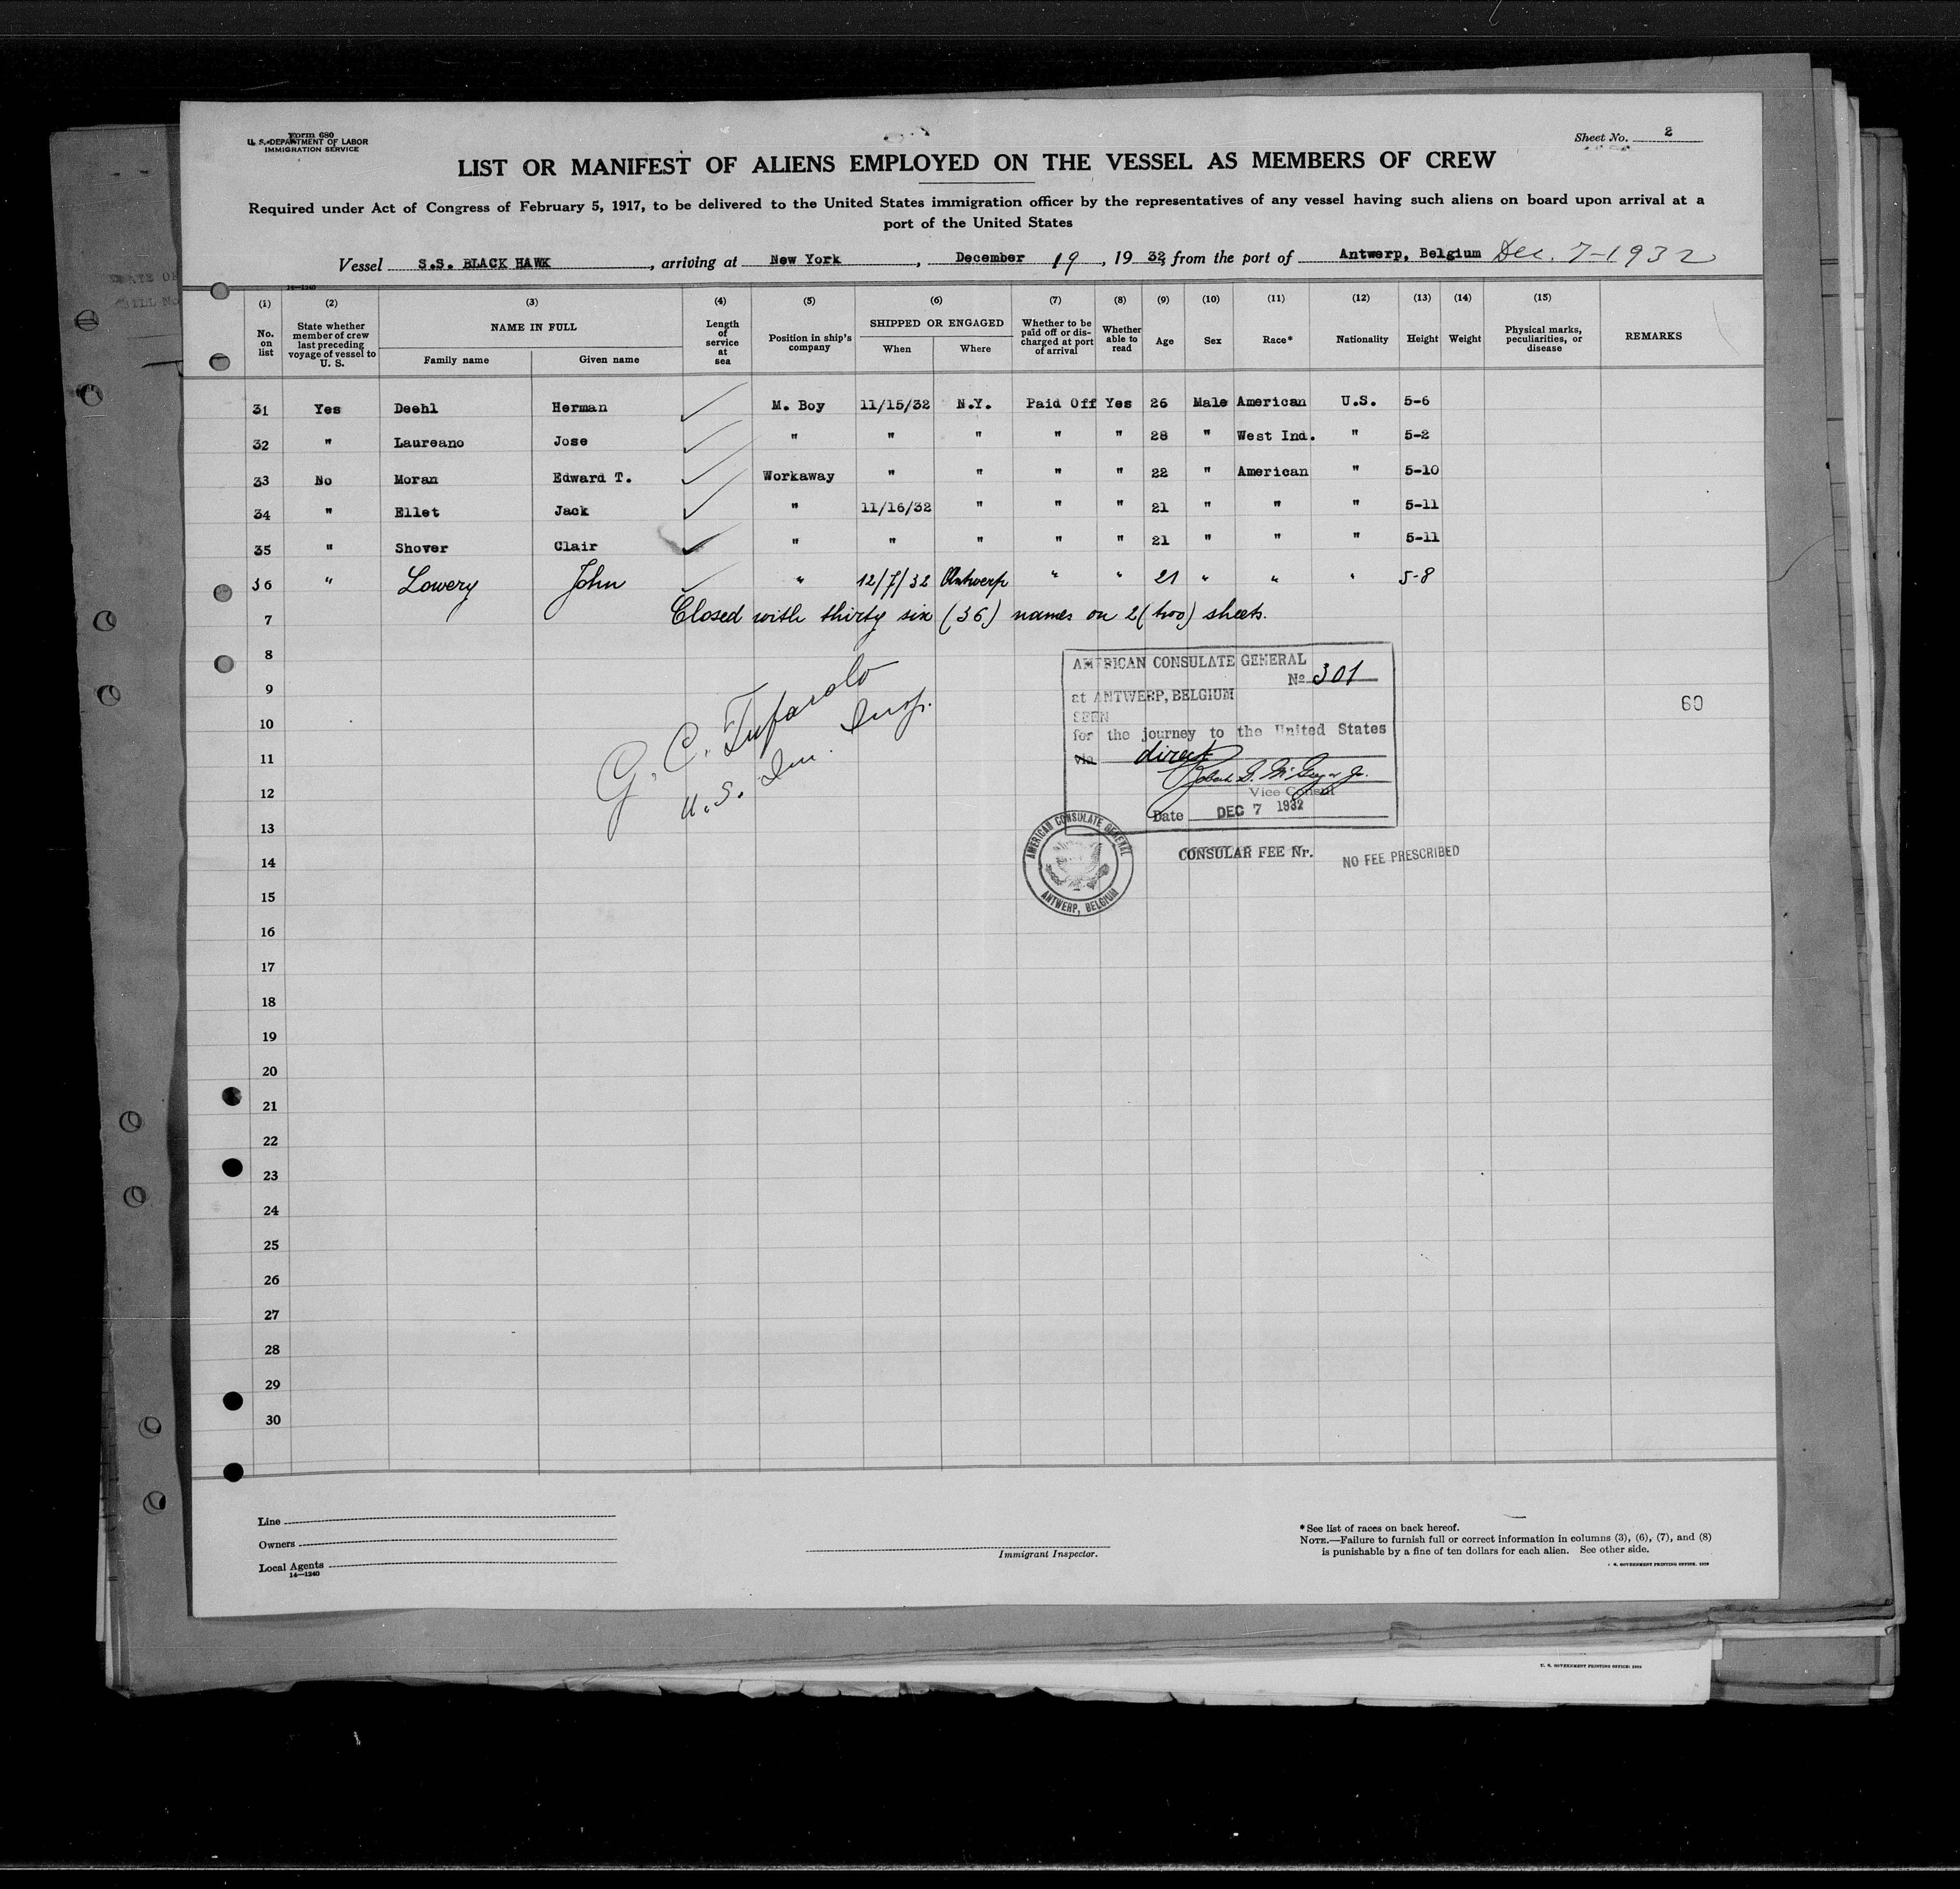 Form 680
U. S. DEPARTMENT OF LABOR
IMMIGRATION SERVICE
Sheet No. 2
LIST OR MANIFEST OF ALIENS EMPLOYED ON THE VESSEL AS MEMBERS OF CREW
Required under Act of Congress of February 5, 1917, to be delivered to the United States immigration officer by the representatives of any vessel having such aliens on board upon arrival at a
port of the United States
Vessel S.S. BLACK HAWK, arriving at New York, December 19, 1932, from the port of Antwerp, Belgium Dec. 7-1932
14—1240
(1) (2) (3) (4) (5) (6) (7) (8) (9) (10) (11) (12) (13) (14) (15)
No. on list
State whether member of crew last preceding voyage of vessel to U. S.
NAME IN FULL
Family name Given name
Length of service at sea
Position in ship's company
SHIPPED OR ENGAGED
When Where
Whether to be paid off or discharged at port of arrival
Whether able to read
Age Sex Race* Nationality Height Weight
Physical marks, peculiarities, or disease
REMARKS
31 Yes Deehl Herman ✓ M. Boy 11/15/32 N.Y. Paid Off Yes 26 Male American U.S. 5-6
32 " Laureano Jose ✓ " " " " " 28 " West Ind. " 5-2
33 No Moran Edward T. ✓ Workaway " " " " 22 " American " 5-10
34 " Ellet Jack ✓ " 11/16/32 " " " 21 " " " 5-11
35 " Shover Clair ✓ " " " " " 21 " " " 5-11
36 " Lowery John ✓ " 12/7/32 Antwerp " " 21 " " " 5-8
7 Closed with thirty six (36) names on 2 (two) sheets.
8
9
10
11
12
13
14
15
16
17
18
19
20
21
22
23
24
25
26
27
28
29
30
U.S. Im. Insp.
AMERICAN CONSULATE GENERAL
No. 301
at ANTWERP, BELGIUM
SEEN
for the journey to the United States
via direct
Vice Consul
Date DEC 7 1932
60
AMERICAN CONSULATE GENERAL
ANTWERP, BELGIUM
CONSULAR FEE Nr. NO FEE PRESCRIBED
Line
Owners
Local Agents
14—1240
Immigrant Inspector.
*See list of races on back hereof.
NOTE.—Failure to furnish full or correct information in columns (3), (6), (7), and (8)
is punishable by a fine of ten dollars for each alien. See other side.
S. GOVERNMENT PRINTING OFFICE: 1929
U. S. GOVERNMENT PRINTING OFFICE: 1929